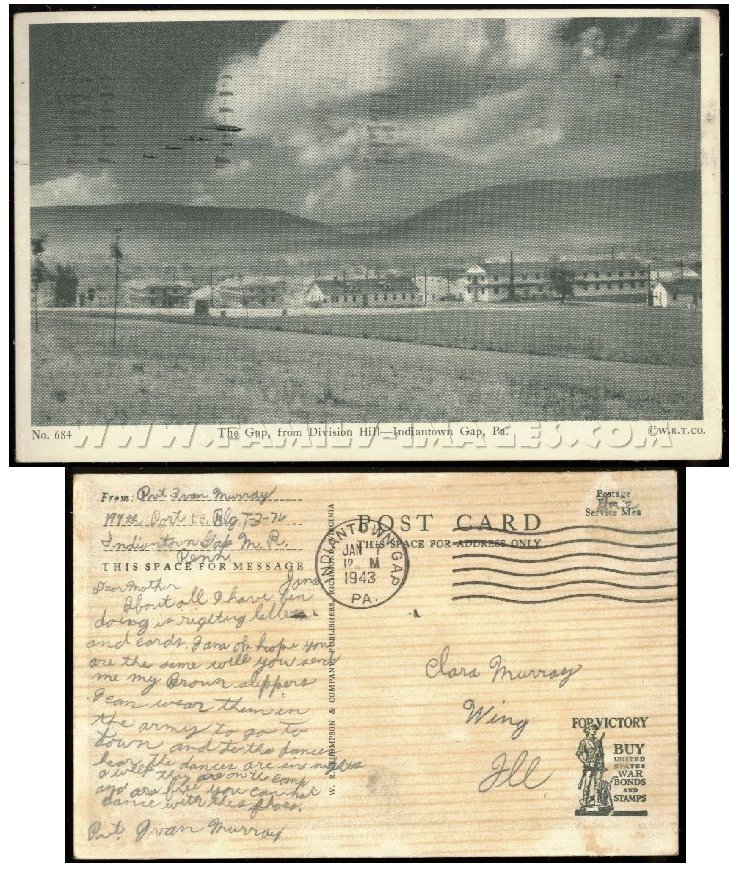 No. 684 The Gap, from Division Hill—Indiantown Gap, Pa. ©W.R.T.CO.
WWW.FAMILY-IMAGES.COM
From: Pvt Ivan Murray
Port Co. Blg T-3-72
Indiantown Gap M. R.
Penn
THIS SPACE FOR MESSAGE
POST CARD
THIS SPACE FOR ADDRESS ONLY
Postage
Service Men
INDIANTOWN GAP
JAN
12 M
1943
PA.
W. R. THOMPSON & COMPANY, PUBLISHERS, RICHMOND, VIRGINIA
Dear Mother
About all I have ben
doing is righting letters
and cards. I am oh hope you
are the same will you send
me my Brown slippers
I can wear them in
the army to go to
town and to the dances
hear the dances are six nights
a week they are on the camp
and are free you can not
dance with this shoes.
Pvt. Ivan Murray
Clara Murray
Wing
Ill
FOR VICTORY
BUY
UNITED
STATES
WAR
BONDS
AND
STAMPS